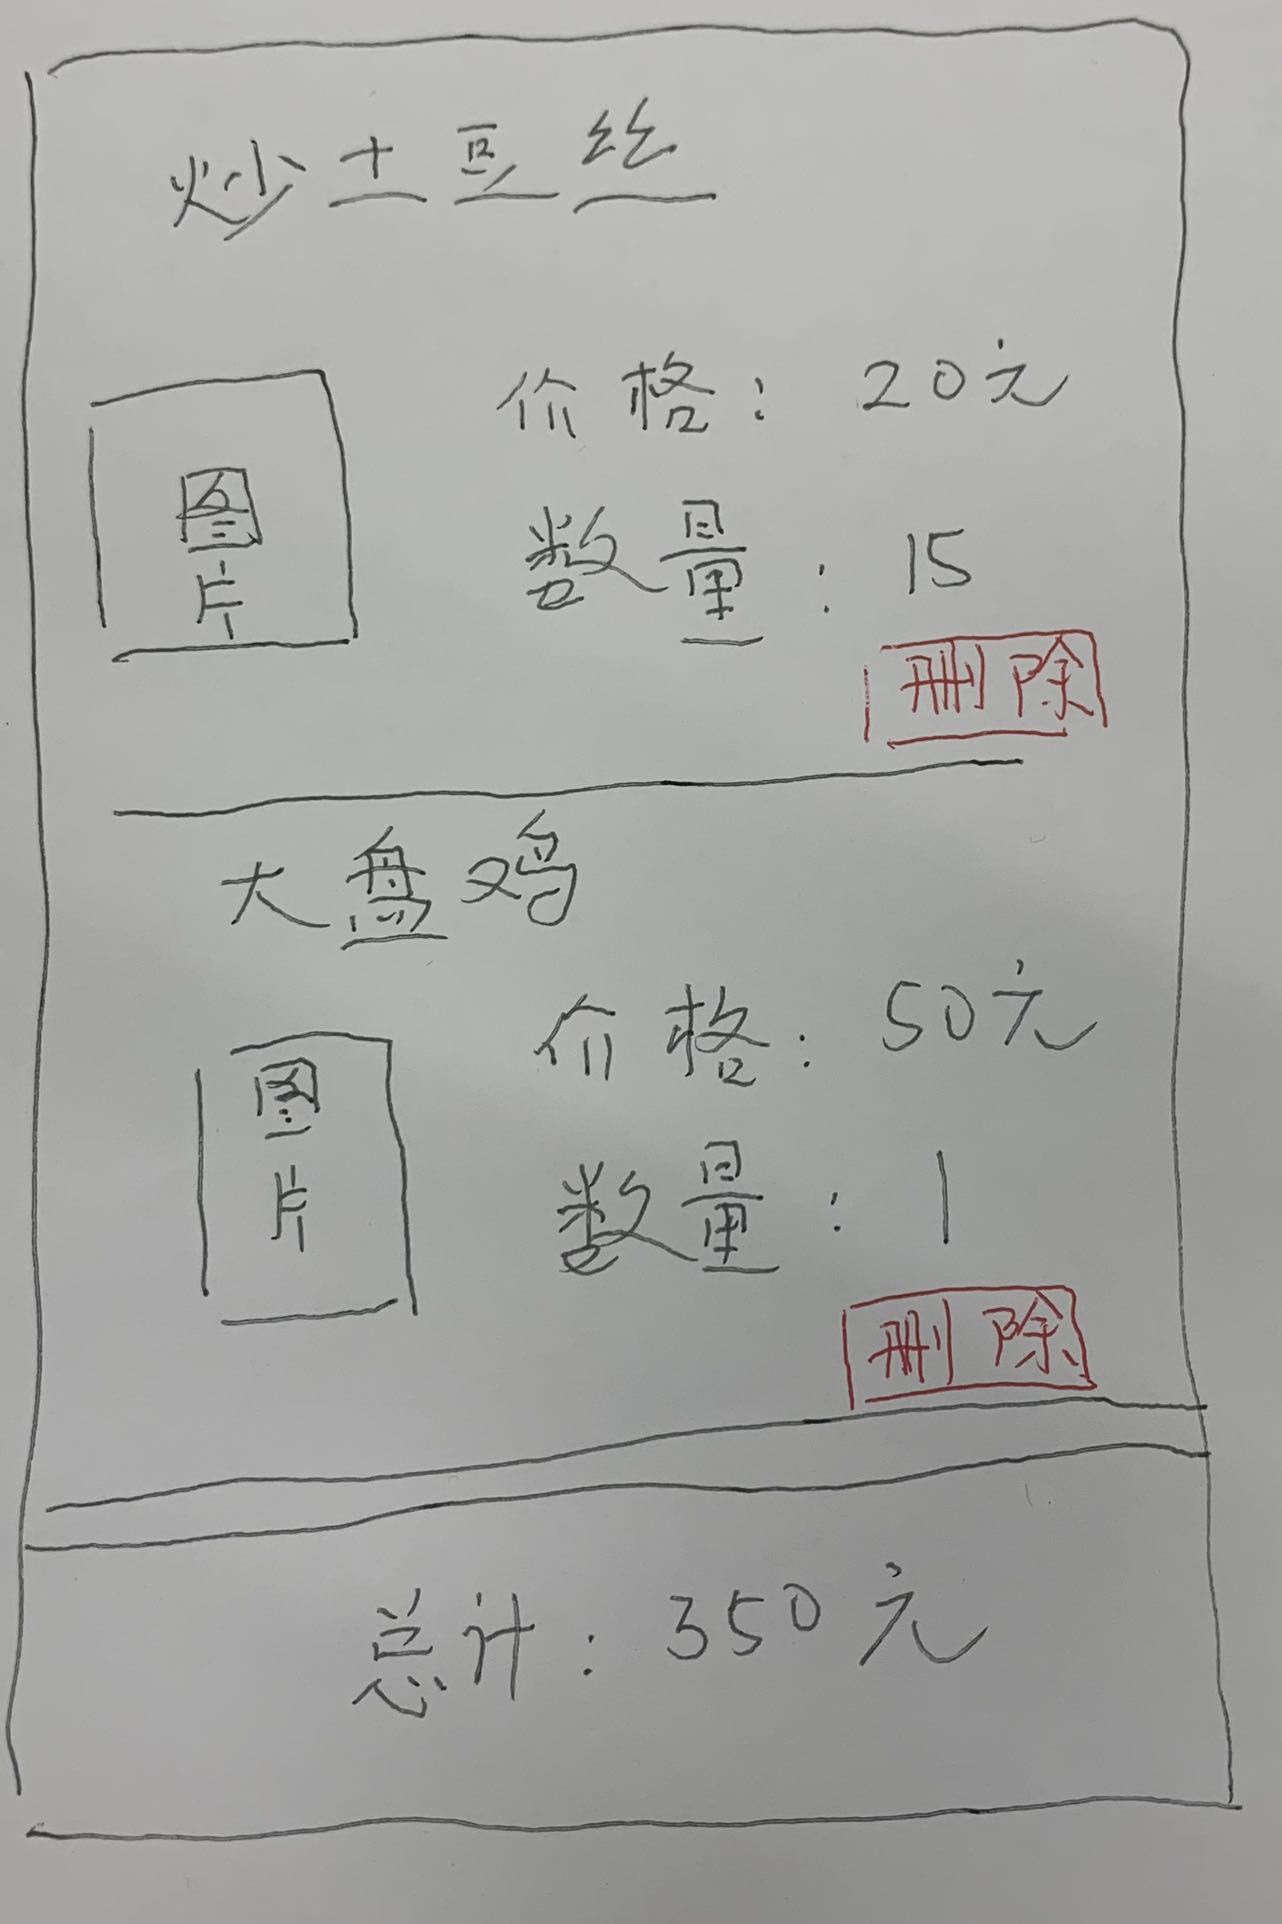 炒土豆丝
图片
价格：20元
数量：15
删除
大盘鸡
图片
价格：50元
数量：1
删除
总计：350元